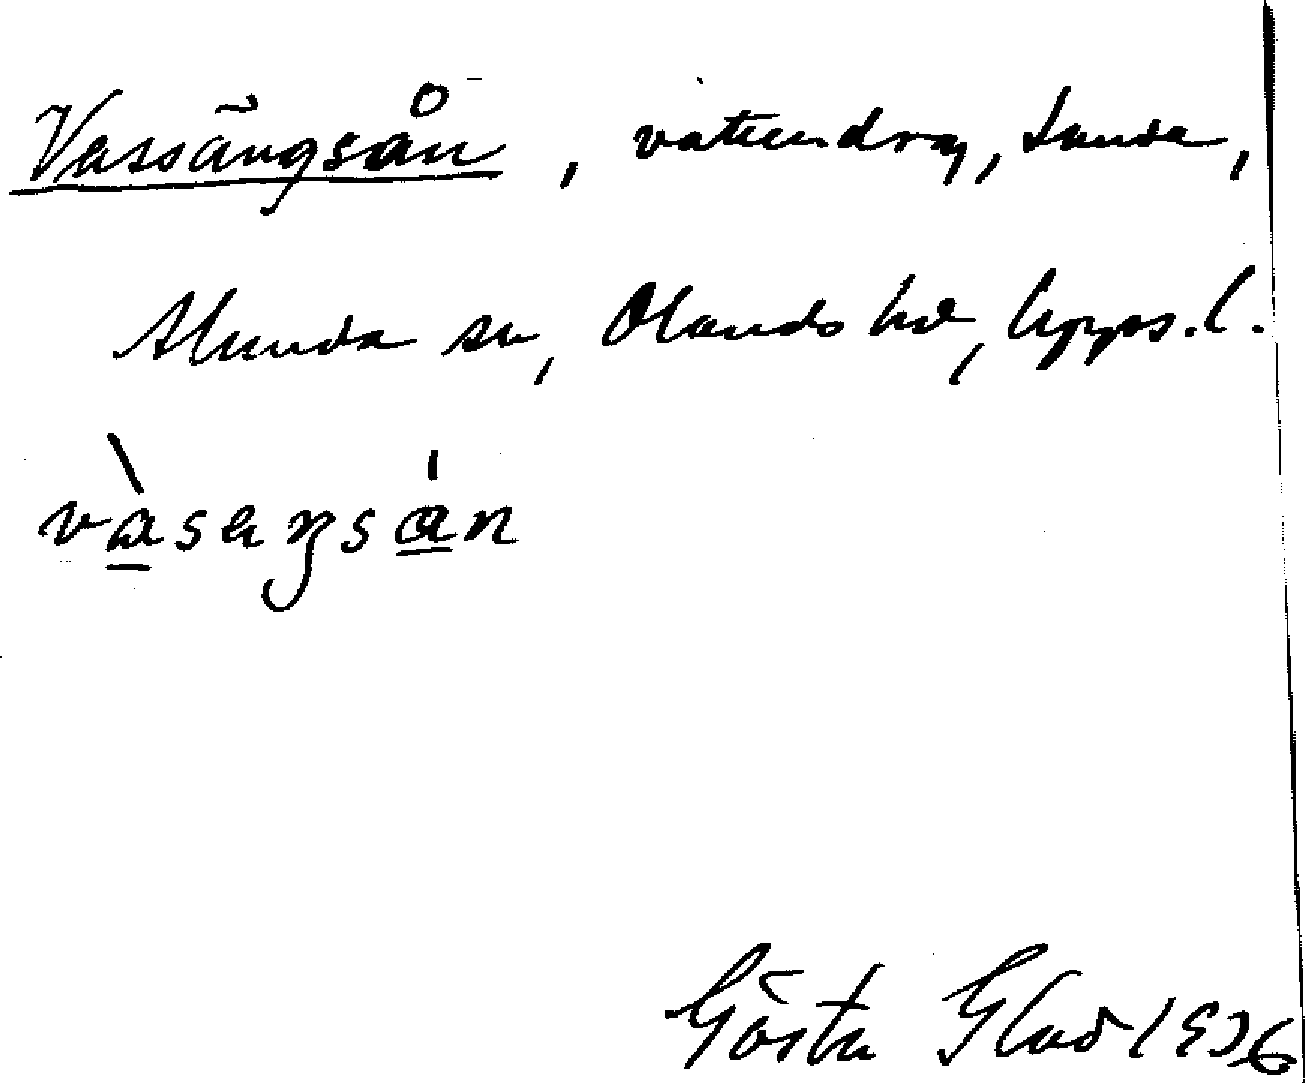 Vassängsån, vattendrag, Sunda,
Alunda sn, Olands hd, Upps. l.
Gösta Glad 1936